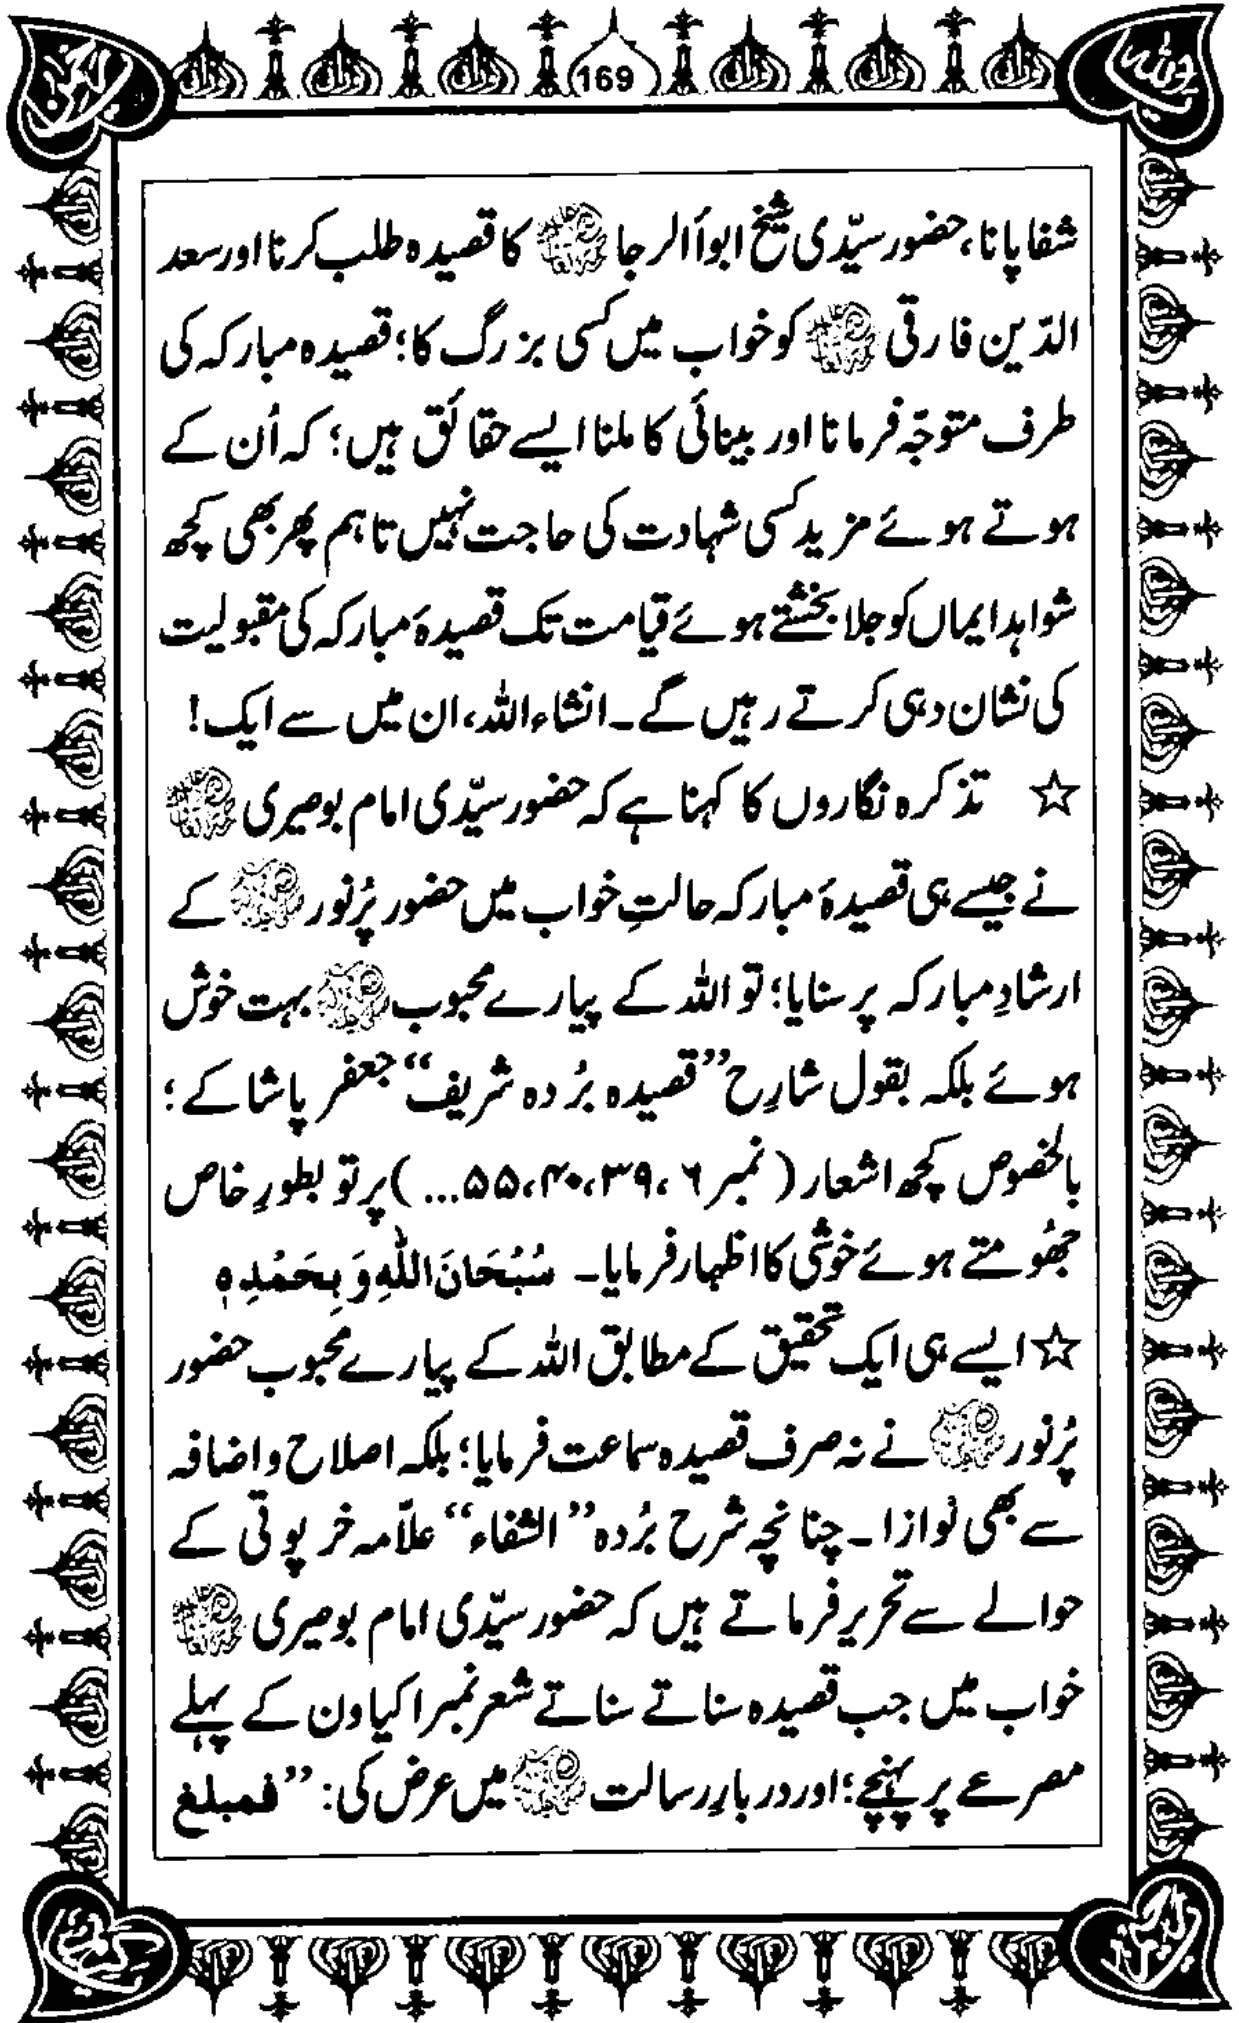 169
شفا پانا، حضور سیّدی شیخ ابوأالرجا کا قصیدہ طلب کرنا اور سعد
الدّین فارقی کو خواب میں کسی بزرگ کا؛ قصیدہ مبارکہ کی
طرف متوجّہ فرمانا اور بینائی کا ملنا ایسے حقائق ہیں؛ کہ اُن کے
ہوتے ہوئے مزید کسی شہادت کی حاجت نہیں تاہم پھر بھی کچھ
شواہد ایماں کو جلا بخشتے ہوئے قیامت تک قصیدۂ مبارکہ کی مقبولیت
کی نشان دہی کرتے رہیں گے۔ انشاء اللہ، ان میں سے ایک!
☆ تذکرہ نگاروں کا کہنا ہے کہ حضور سیّدی امام بوصیری
نے جیسے ہی قصیدۂ مبارکہ حالتِ خواب میں حضور پُرنور کے
ارشادِ مبارکہ پر سنایا؛ تو اللہ کے پیارے محبوب بہت خوش
ہوئے بلکہ بقول شارِح ”قصیدہ بُردہ شریف“ جعفر پاشا کے؛
بالخصوص کچھ اشعار (نمبر ۶، ۳۹، ۴۰، ۵۵...) پر تو بطورِ خاص
جھُومتے ہوئے خوشی کا اظہار فرمایا۔ سُبْحَانَ اللّٰہِ وَ بِحَمْدِہٖ
☆ ایسے ہی ایک تحقیق کے مطابق اللہ کے پیارے محبوب حضور
پُرنور نے نہ صرف قصیدہ سماعت فرمایا؛ بلکہ اصلاح و اضافہ
سے بھی نوازا۔ چنانچہ شرح بُردہ ”الشفاء“ علاّمہ خرپوتی کے
حوالے سے تحریر فرماتے ہیں کہ حضور سیّدی امام بوصیری
خواب میں جب قصیدہ سناتے سناتے شعر نمبر اکیاون کے پہلے
مصرعے پر پہنچے؛ اور دربارِ رسالت میں عرض کی: ”فمبلغ